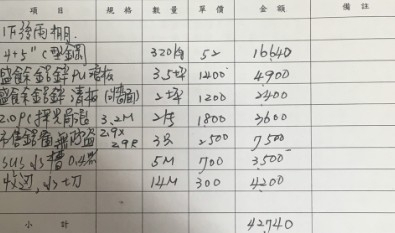 項目 規格 數量 單價 金額 備註
1下後雨棚
4+5"C型鋼 320kg 52 16640
盛余鋁鋅PU浪板 3.5坪 1400 4900
盛余鋁鋅清板(牆面) 2坪 1200 2400
2.0PC採光 3.2M 2 1800 3600
2.9x2.9尺 3 2500 7500
SUS水槽0.4 5M 700 3,500
收边,水切 14M 300 4200
小計 42740